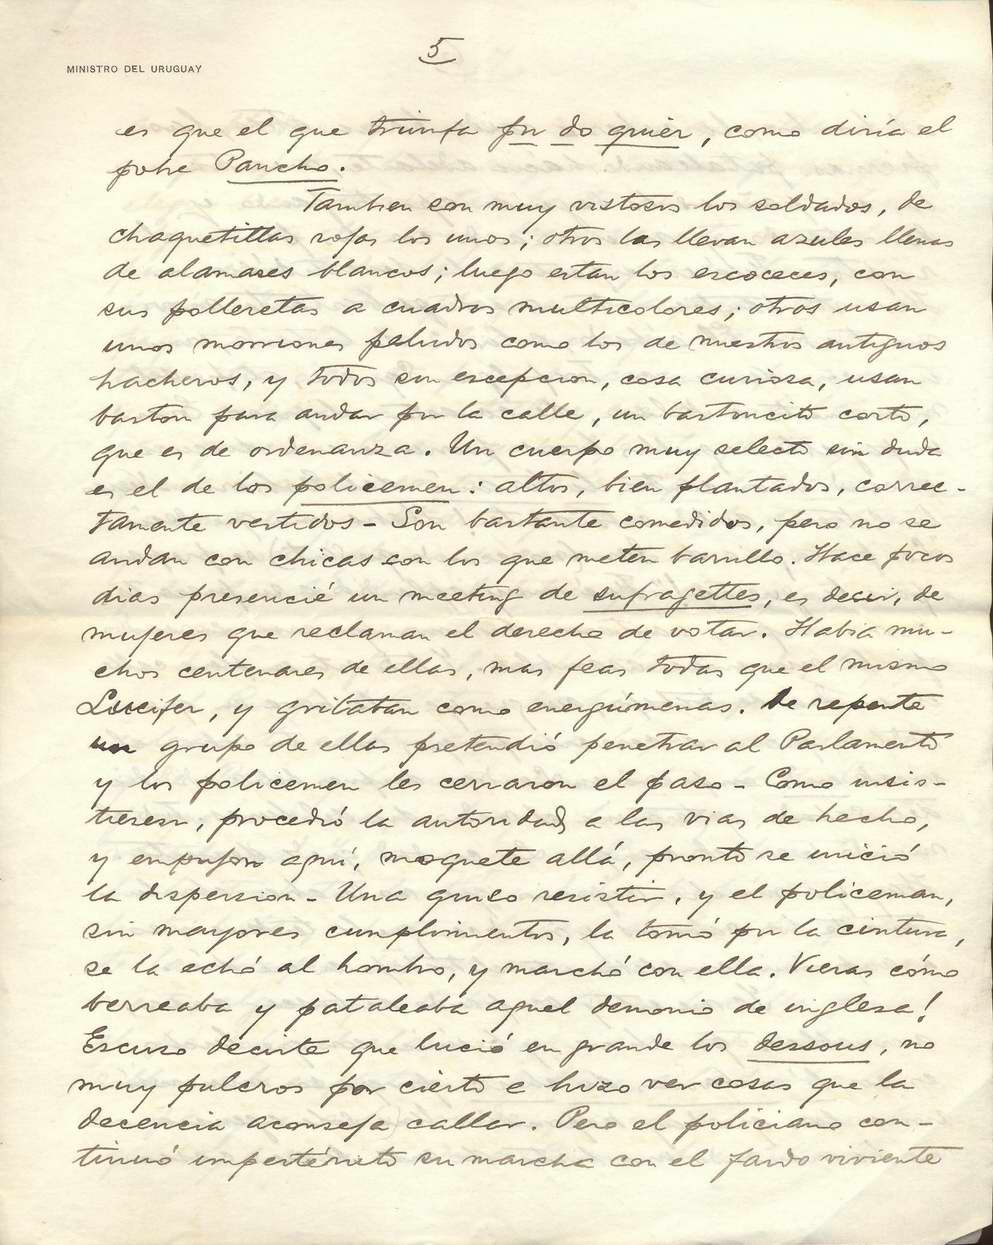 5
MINISTRO DEL URUGUAY
es que el que triunfa por do quier, como diría el
pobre Pancho.
Tambien son muy vistosos los soldados, de
chaquetillas rojas los unos; otros las llevan azules llenas
de alamares blancos; luego estan los escoceces, con
sus polleretas a cuadros multicolores; otros usan
unos morriones peludos como los de nuestros antiguos
hacheros, y todos sin escepcion, cosa curiosa, usan
bastón para andar por la calle, un bastoncito corto,
que es de ordenanza. Un cuerpo muy selecto sin duda
es el de los policemen: altos, bien plantados, correc-
tamente vestidos - Son bastante comedidos, pero no se
andan con chicas con los que meten barullo. Hace pocos
dias presencié un meeting de sufragettes, es decir, de
mujeres que reclaman el derecho de votar. Habia mu-
chos centenares de ellas, mas feas todas que el mismo
Lucifer, y gritaban como energúmenas. De repente
un grupo de ellas pretendió penetrar al Parlamento
y los policemen les cerraron el paso - Como insis-
tiesen, procedió la autoridad a las vias de hecho,
y empujon aquí, moquete allá, pronto se inició
la dispersion - Una quiso resistir, y el policeman,
sin mayores cumplimientos, la tomó por la cintura,
se la echó al hombro, y marchó con ella. Vieras cómo
berreaba y pataleaba aquel demonio de inglesa!
Escuso decirte que lució en grande los dessous, no
muy pulcros por cierto e hizo ver cosas que la
decencia aconseja callar. Pero el policiano con-
tinuó impertérrito su marcha con el fardo viviente